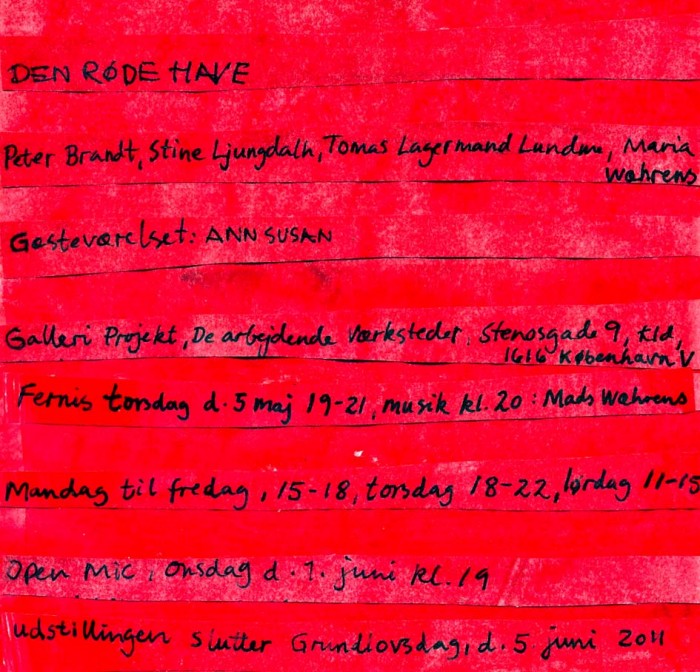 DEN RØDE HAVE
Peter Brandt, Stine Ljungdalh, Tomas Lagermand Lundme, Maria
Wæhrens
Gæsteværelset: ANN SUSAN
Galleri Projekt, De arbejdende Værksteder, Stenosgade 9, kld,
1616 København V
Fernis torsdag d. 5 maj 19-21, musik kl. 20: Mads Wæhrens
Mandag til fredag, 15-18, torsdag 18-22, lørdag 11-15
Open Mic, onsdag d. 1. juni kl. 19
udstillingen slutter Grundlovsdag, d. 5 juni 2011